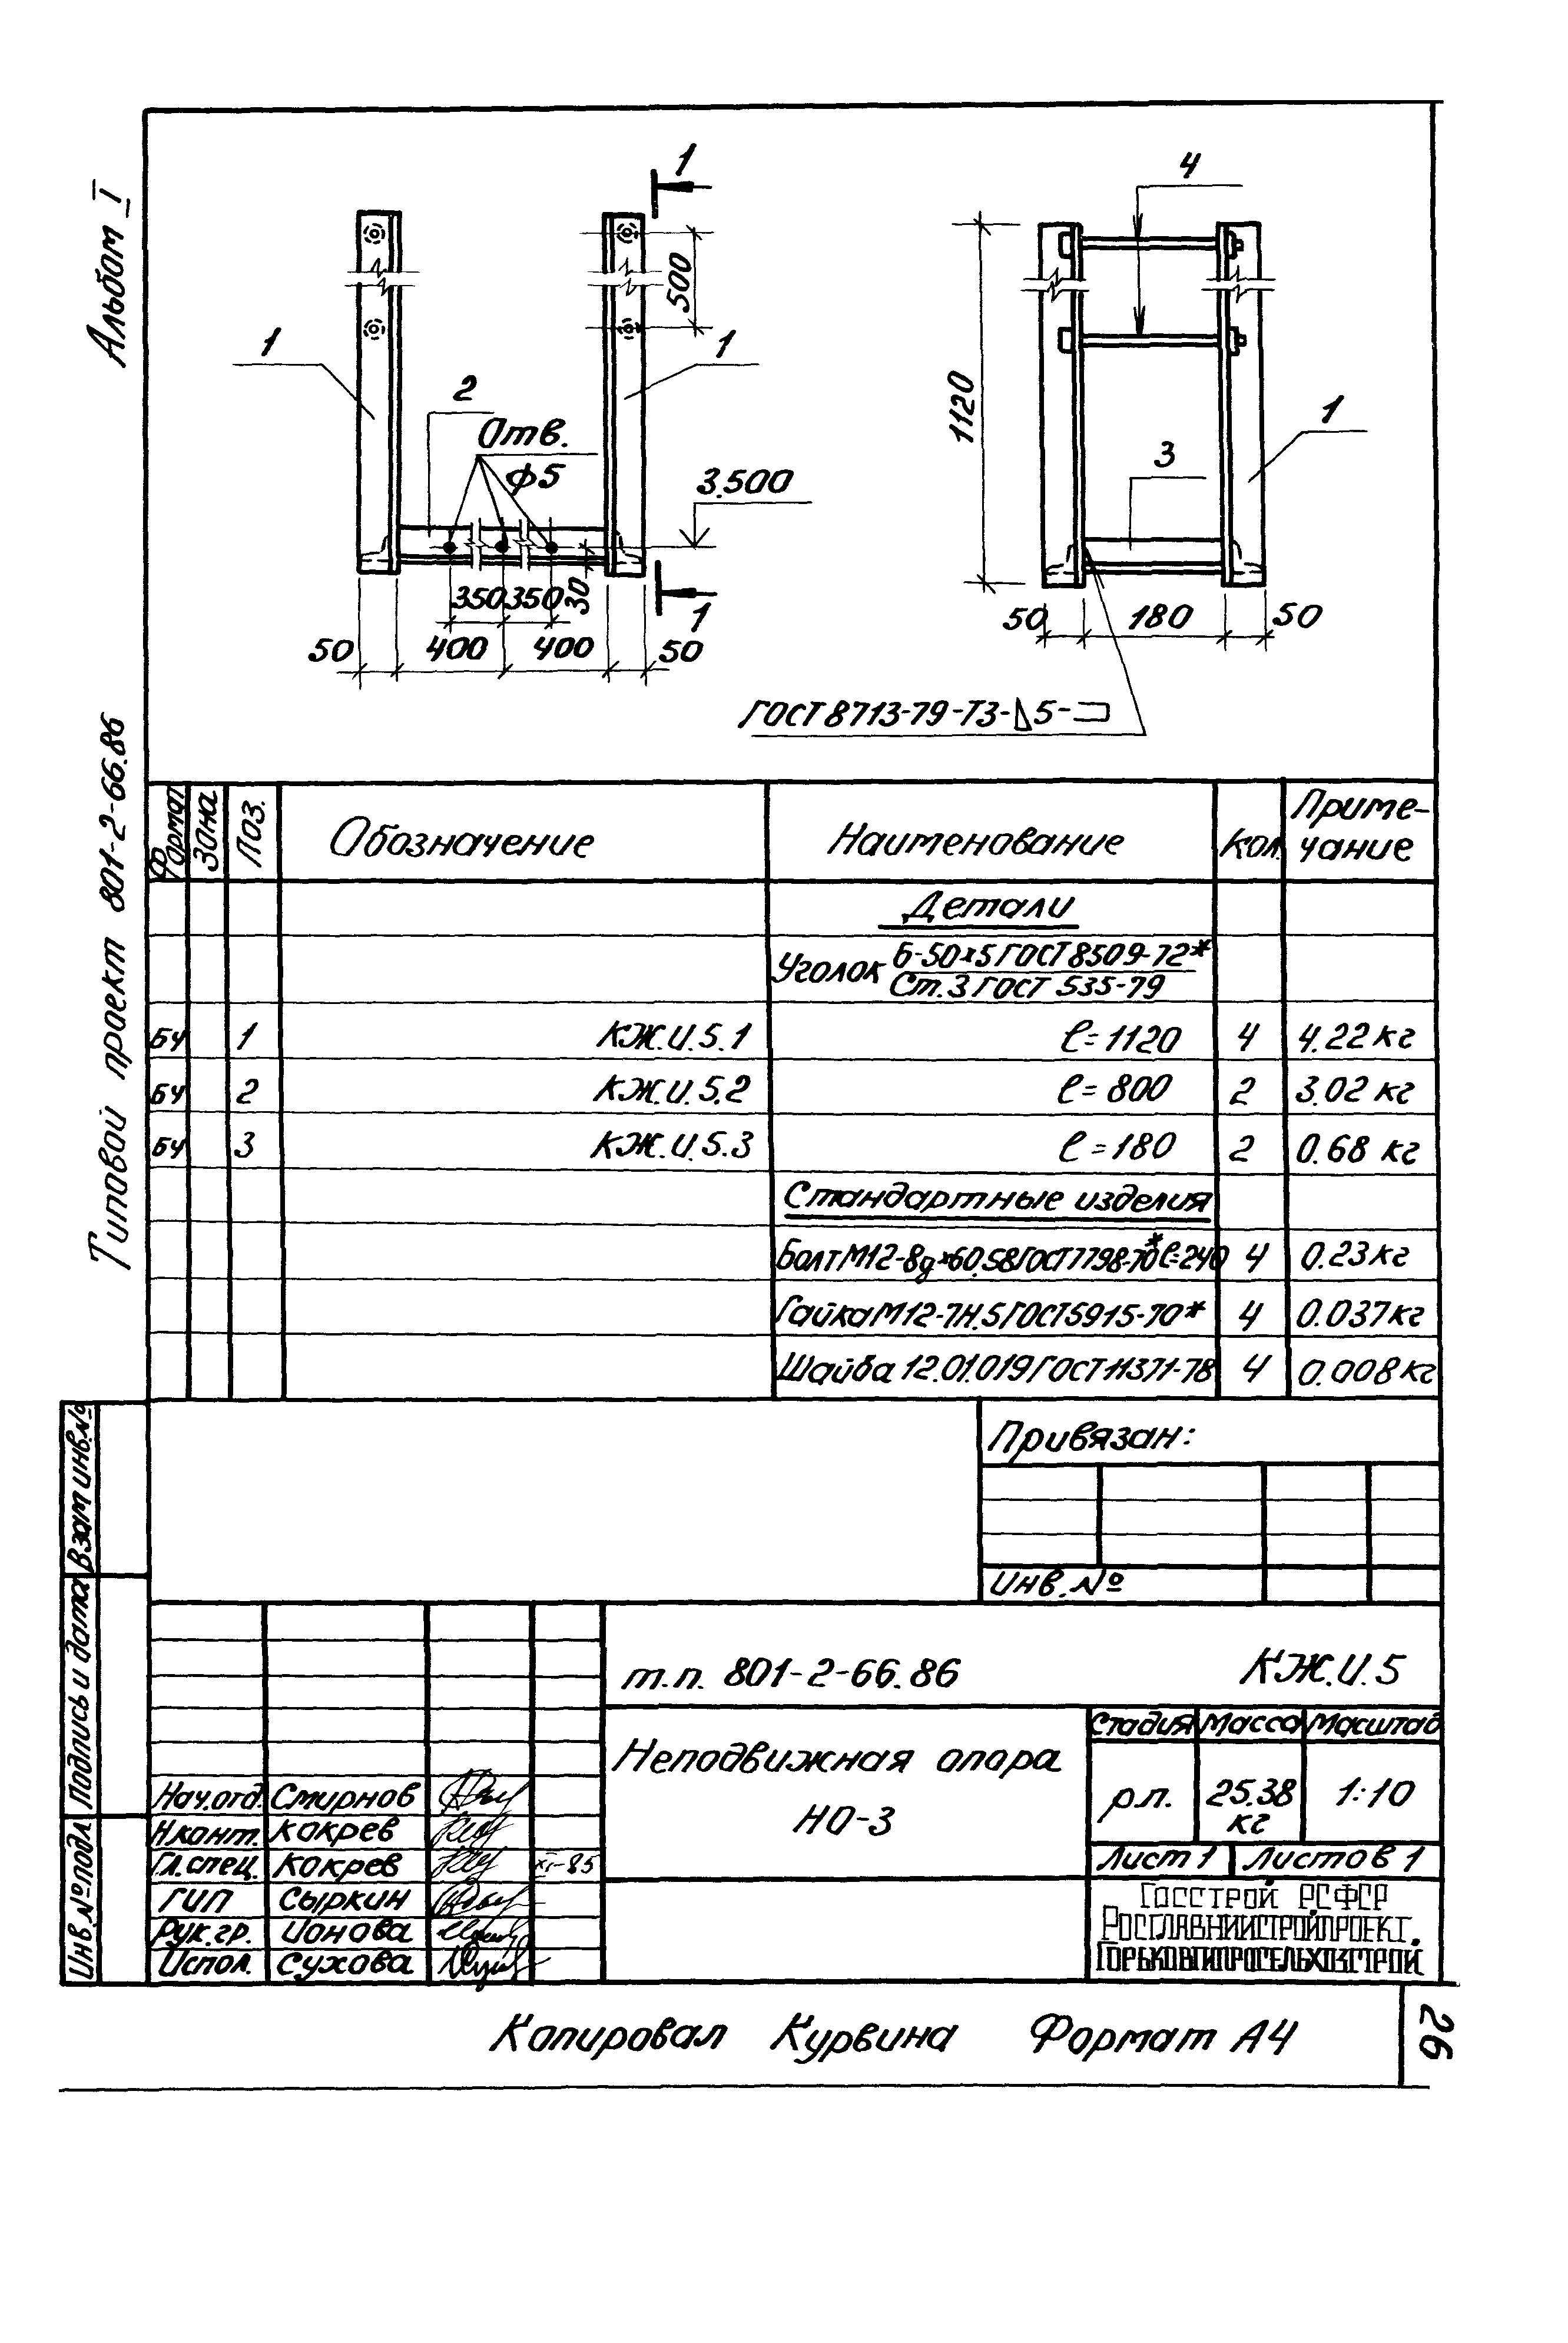 Альбом I
Типовой проект 801-2-66.86
1
4
500
1
1
1120
1
2
Отв.
ϕ5
3
3.500
350 350 30
1
50 400 400 50
50 180 50
ГОСТ 8713-79-Т3-◺5-⊐
Формат Зона Поз. Обозначение Наименование Кол. Приме-
чание
Детали
Уголок Б-50х5 ГОСТ 8509-72*
Ст.3 ГОСТ 535-79
БЧ 1 КЖ.И.5.1 ℓ=1120 4 4.22 кг
БЧ 2 КЖ.И.5.2 ℓ=800 2 3.02 кг
БЧ 3 КЖ.И.5.3 ℓ=180 2 0.68 кг
Стандартные изделия
Болт М12-8g×60.58 ГОСТ 7798-70* ℓ=240 4 0.23 кг
Гайка М12-7Н.5 ГОСТ 5915-70* 4 0.037 кг
Шайба 12.01.019 ГОСТ 11371-78 4 0.008 кг
Взам инв.№
Подпись и дата
Инв.№ подл
Привязан:
Инв.№
т.п. 801-2-66.86 КЖ.И.5
Неподвижная опора
НО-3
Стадия Масса Масштаб
р.п. 25.38
кг 1:10
Лист 1 Листов 1
Нач.отд. Смирнов
Н.конт. Кокрев
Гл.спец. Кокрев XI-85
ГИП Сыркин
Рук.гр. Ионова
Испол. Сухова
Госстрой РСФСР
Росглавниистройпроект.
Горьковгипросельхозстрой
Копировал Курвина Формат А4
26